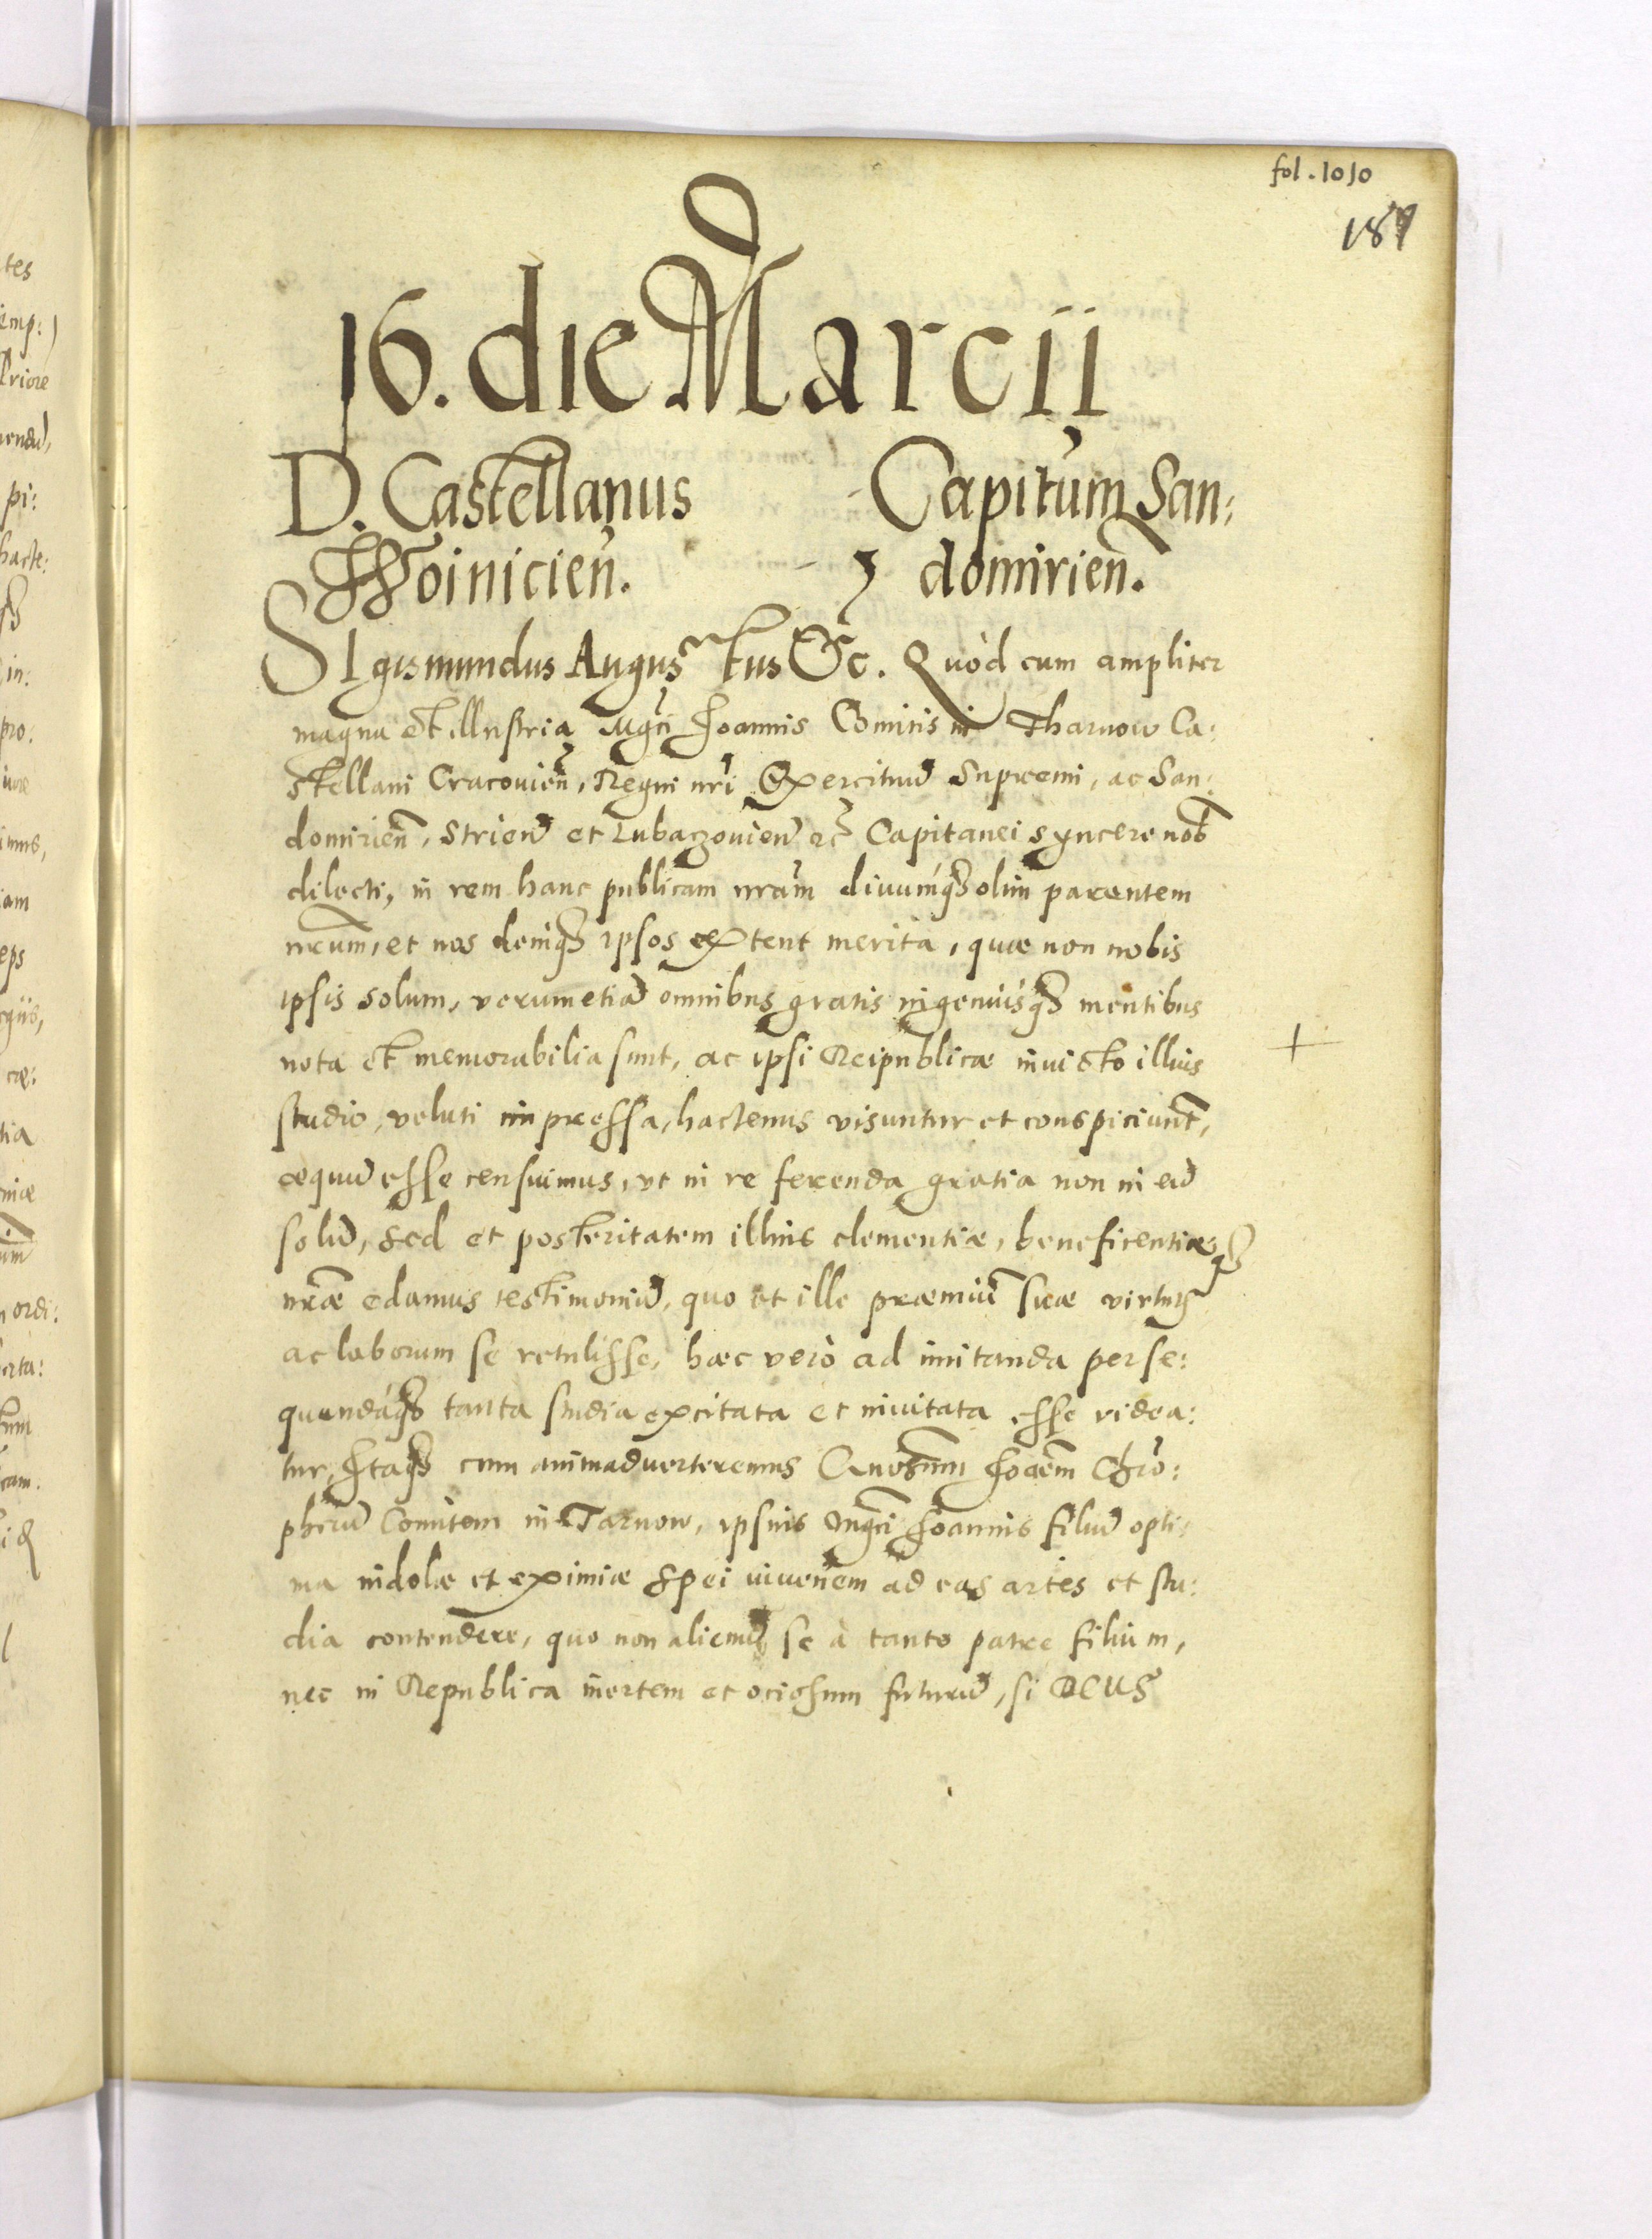 fol. 1010
189
16. die Marcii
D. Castellanus Capitum San:
Woinicien̄. domirien̄.
SIgismundus Augustus &c. Quòd cum ampliter
magna et illustria Mgci Joannis Comitis in Tharnow Ca:
stellani Cracovien̄, Regni nri Exercituū Supremi, ac San:
domirien̄, Strien̄ et Lubaczovien̄ ec̄ Capitanei syncere nob̄
dilecti, in rem hanc publicam nrām divumq3 olim parentem
nrūm, et nos deniq3 ipsos extent merita, quae non nobis
ipsis solum, verumetiā omnibus gratis ingenuisq3 mentibus
nota et memorabilia sunt, ac ipsi Reipublicae invicto illius
studio, veluti impressa, hactenus visuntur et conspiciunt̄,
aequū esse censuimus, ut in re ferenda gratia non in eū
solū, sed et posteritatem illius clementiae, beneficentiaeq3
nrāe edamus testimoniū, quo et ille praemiū suae virtutis
ac laborum se retulisse, haec verò ad imitanda perse:
quendáq3 tanta studia excitata et invitata esse videa:
tur, Itaq3 cum animadverteremus Gnosum Joāem Chrō:
pherū Comitem in Tarnow, ipsius Mgci Joannis filiū opti:
ma indolae et eximiae spei iuvenem ad eas artes et stu:
dia contendere, quo non alienū se à tanto patre filium,
nec in Republica inertem et ociosum futurū, si DEUS